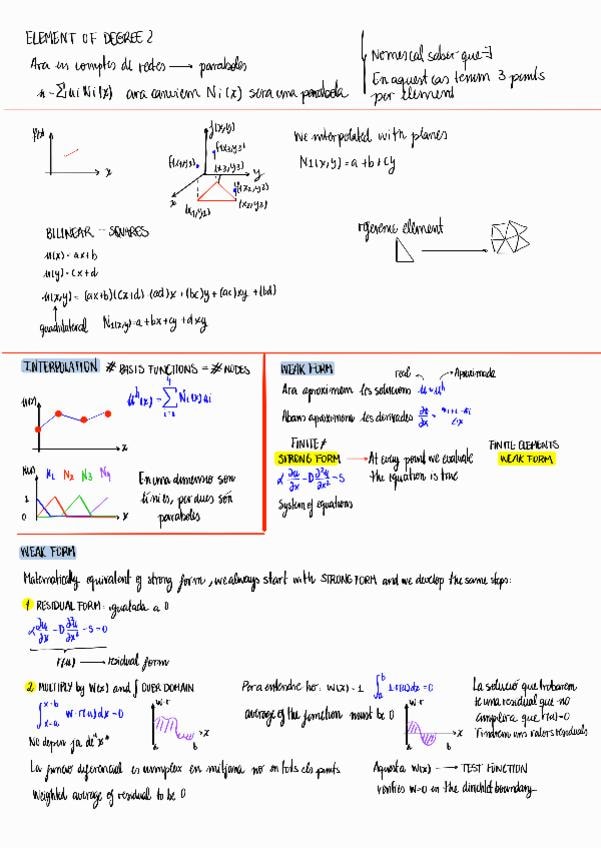 ELEMENT OF DEGREE 2
Ara en comptes de rectes → paraboles
u = Σ ui Ni(x) ara canviem Ni(x) sera una parabola
Nomes cal saber que
En aquest cas tenim 3 punts
per element
f(x)
x
f(x,y)
y
x
(x1,y1)
(x2,y2)
(x3,y3)
We interpolated with planes
N1(x,y) = a + b + cy
BILINEAR - SQUARES
u(x) = ax+b
u(y) = cx+d
u(x,y) = (ax+b)(cx+d) = (ad)x + (bc)y + (ac)xy + (bd)
quadrilateral N1(x,y) = a+bx+cy+dxy
reference element
INTERPOLATION # BASIS FUNCTIONS = # NODES
u(x)
x
u^h(x) = Σ Ni(x) ui
N(x)
N1 N2 N3 N4
1
0
x
En una dimensio son
linies, per dues són
paraboles
WEAK FORM
real
Aproximada
Ara aproximem les solucions u ≈ u^h
Abans aproximavem les derivades ∂u/∂x = (ui+1 - ui)/Δx
FINITE ≠
STRONG FORM → At every point we evaluate
the equation is true
α ∂u/∂x - D ∂²u/∂x² = S
System of equations
FINITE ELEMENTS
WEAK FORM
WEAK FORM
Matematically equivalent of strong form, we always start with STRONG FORM and we develop the same steps:
1 RESIDUAL FORM: igualada a 0
α ∂u/∂x - D ∂²u/∂x² - S = 0
r(u) → residual form
2 MULTIPLY by W(x) and ∫ OVER DOMAIN
∫ x=a x=b w·r(u)dx = 0
No depen ja de "x"
w·r
x
a
b
Per a entendre ho: W(x) = 1 ∫ a b 1·r(u)dx = 0
average of the function must be 0
w·r
x
a
b
La solució que trobarem
te una residual que no
complira que r(u)=0
Tindrem uns valors residuals
La funcio diferencial es compleix en mitjana no en tots els punts
Weighted average of residual to be 0
Aquesta W(x) → TEST FUNCTION
verifies w=0 in the dirichlet boundary